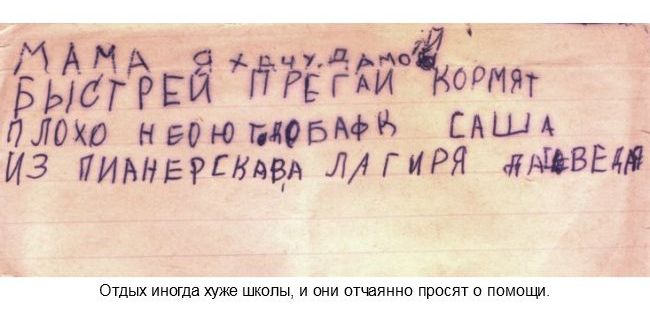 МАМА Я ХЕЧУ ДАМОЙ
БЫСТРЕЙ ПРЕГАЙ КОРМЯТ
ПЛОХО НЕОЮТ ДОБАФК САША
ИЗ ПИАНЕРСКАВА ЛАГИРЯ
Отдых иногда хуже школы, и они отчаянно просят о помощи.